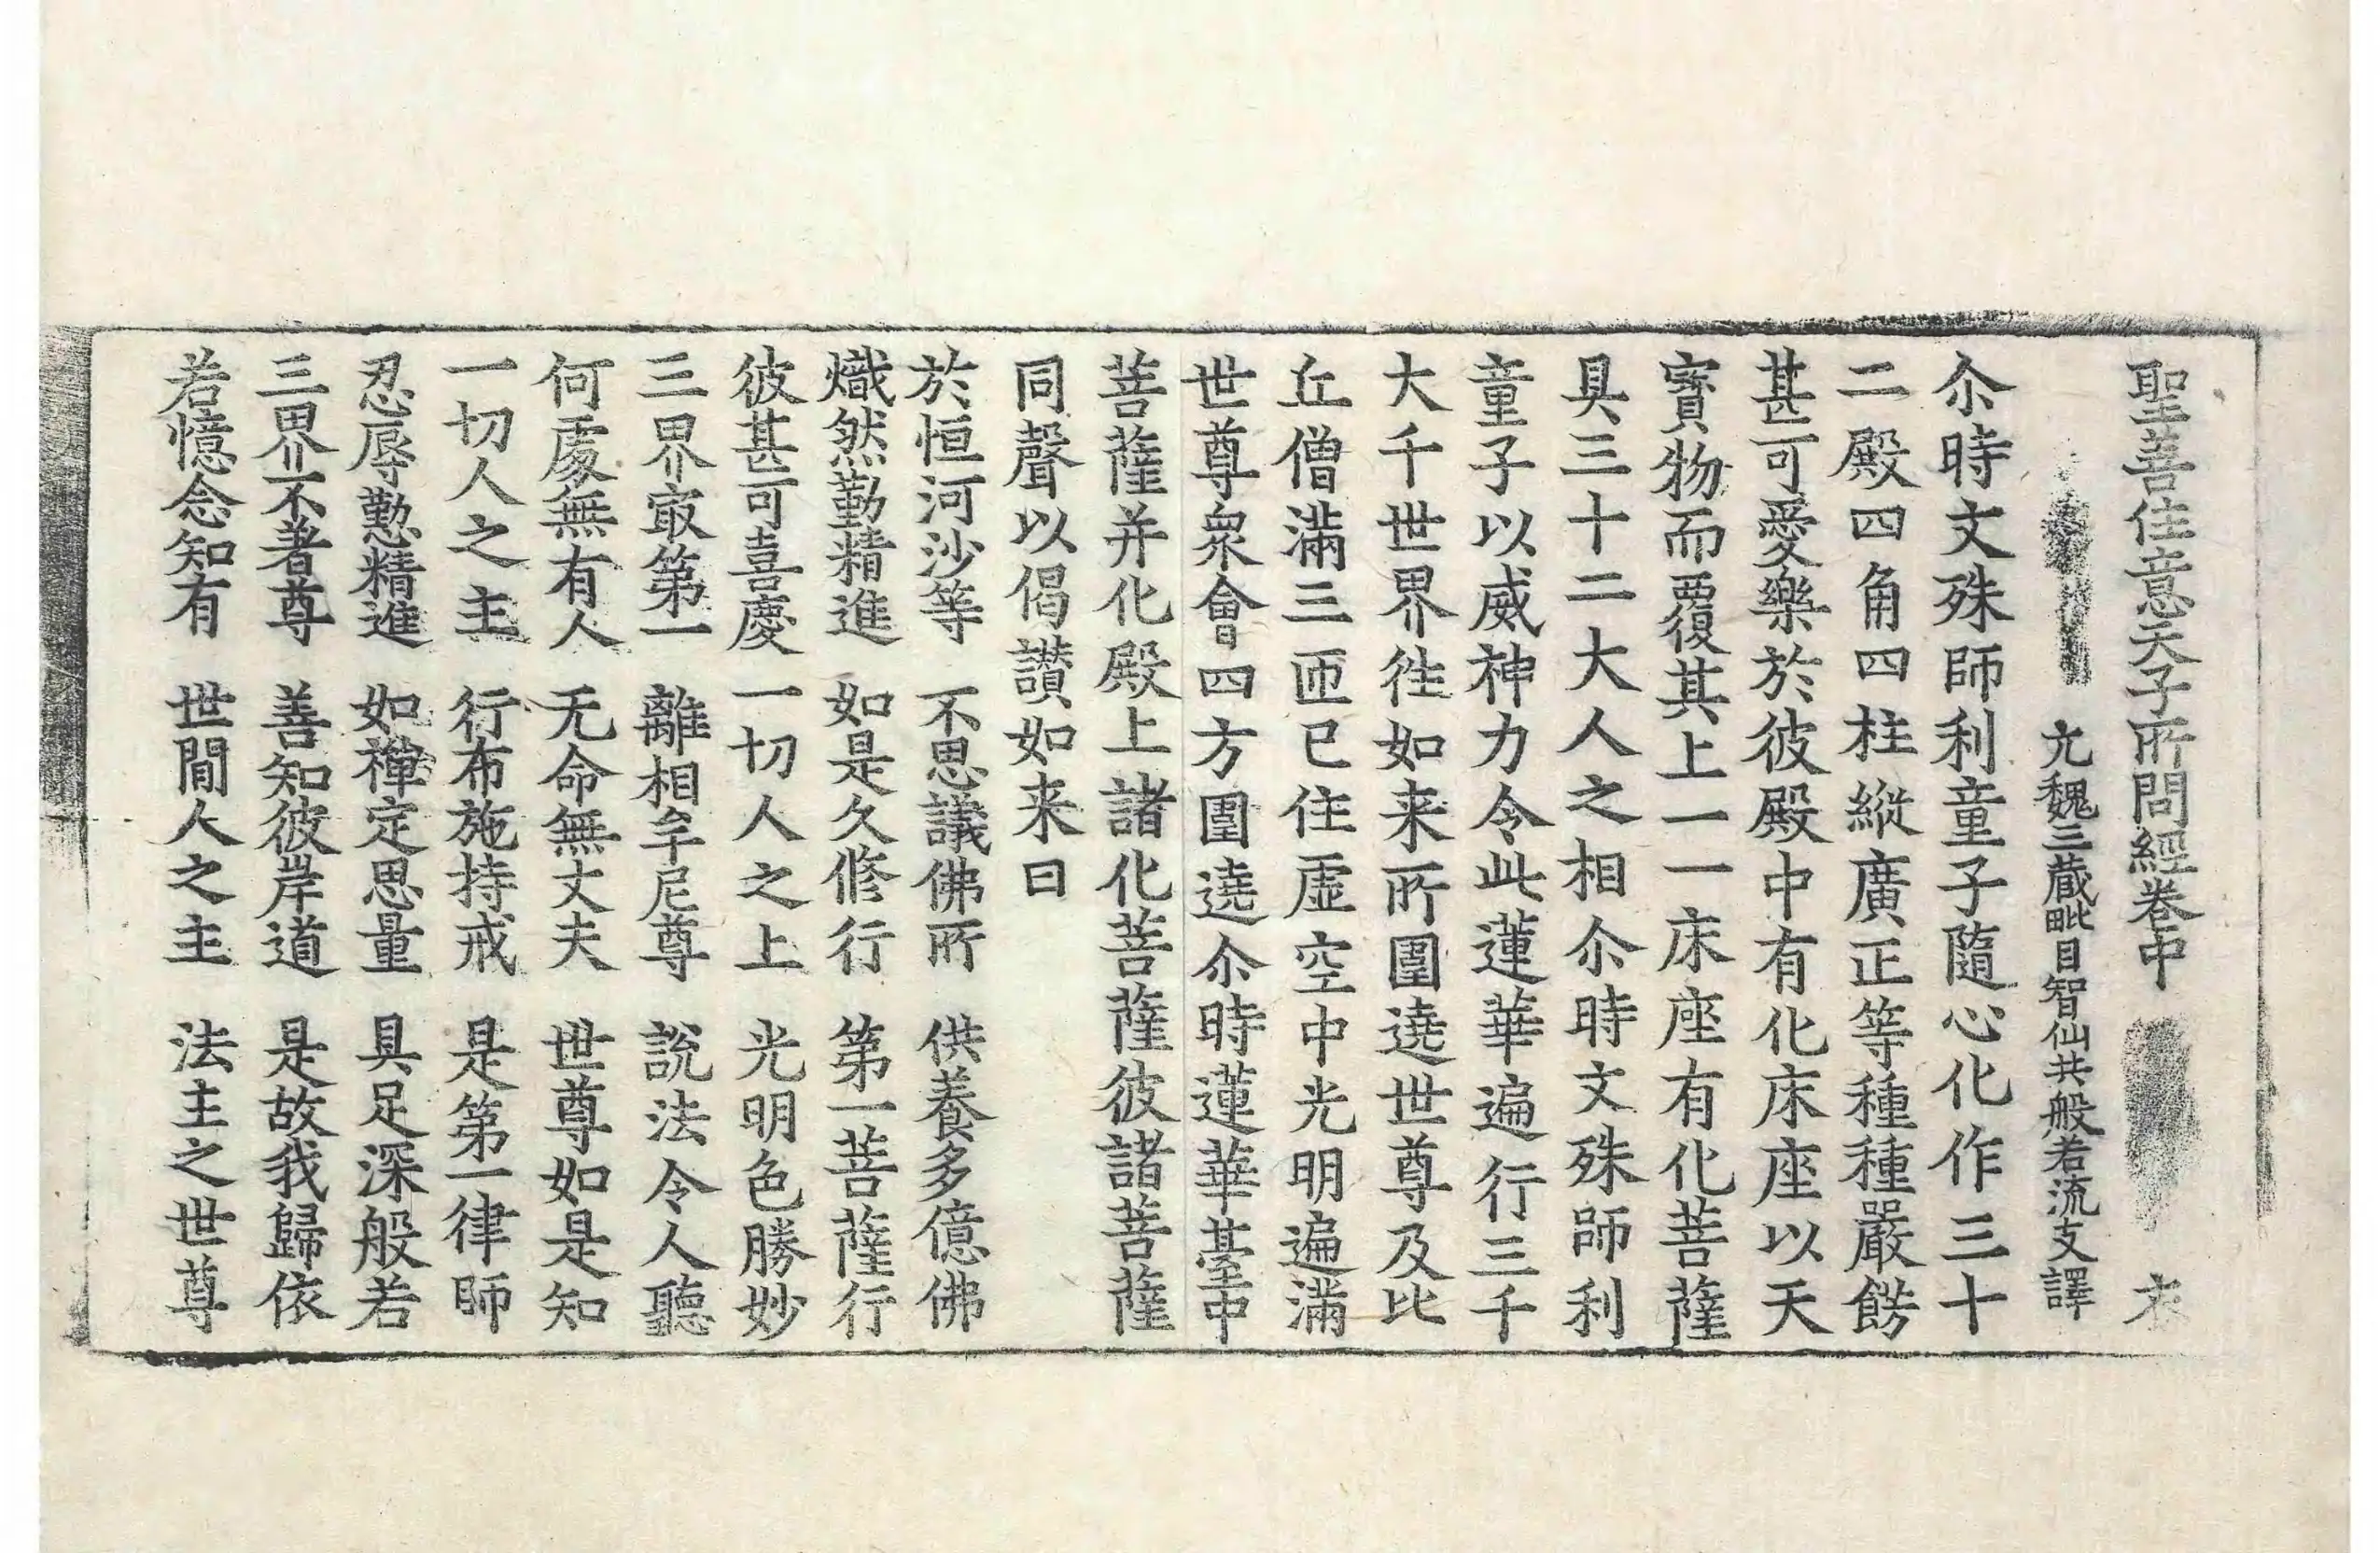 聖善住意天子所問經卷中 衣
元魏三藏毗目智仙共般若流支譯
尒時文殊師利童子隨心化作三十
二殿四角四柱縱廣正等種種嚴餝
甚可愛樂於彼殿中有化床座以天
寶物而覆其上一一床座有化菩薩
具三十二大人之相尒時文殊師利
童子以威神力令此蓮華遍行三千
大千世界徃如来所圍遶世尊及比
丘僧滿三匝已住虛空中光明遍滿
世尊衆會四方圍遶尒時蓮華臺中
菩薩并化殿上諸化菩薩彼諸菩薩
同聲以偈讃如来曰
於恒河沙等 不思議佛所 供養多億佛
熾然勤精進 如是久修行 第一菩薩行
彼甚可喜慶 一切人之上 光明色勝妙
三界㝡第一 離相牟尼尊 說法令人聽
何處無有人 无命無丈夫 世尊如是知
一切人之主 行布施持戒 是第一律師
忍辱懃精進 如禪定思量 具足深般若
三界不著尊 善知彼岸道 是故我歸依
若憶念知有 世間人之主 法主之世尊